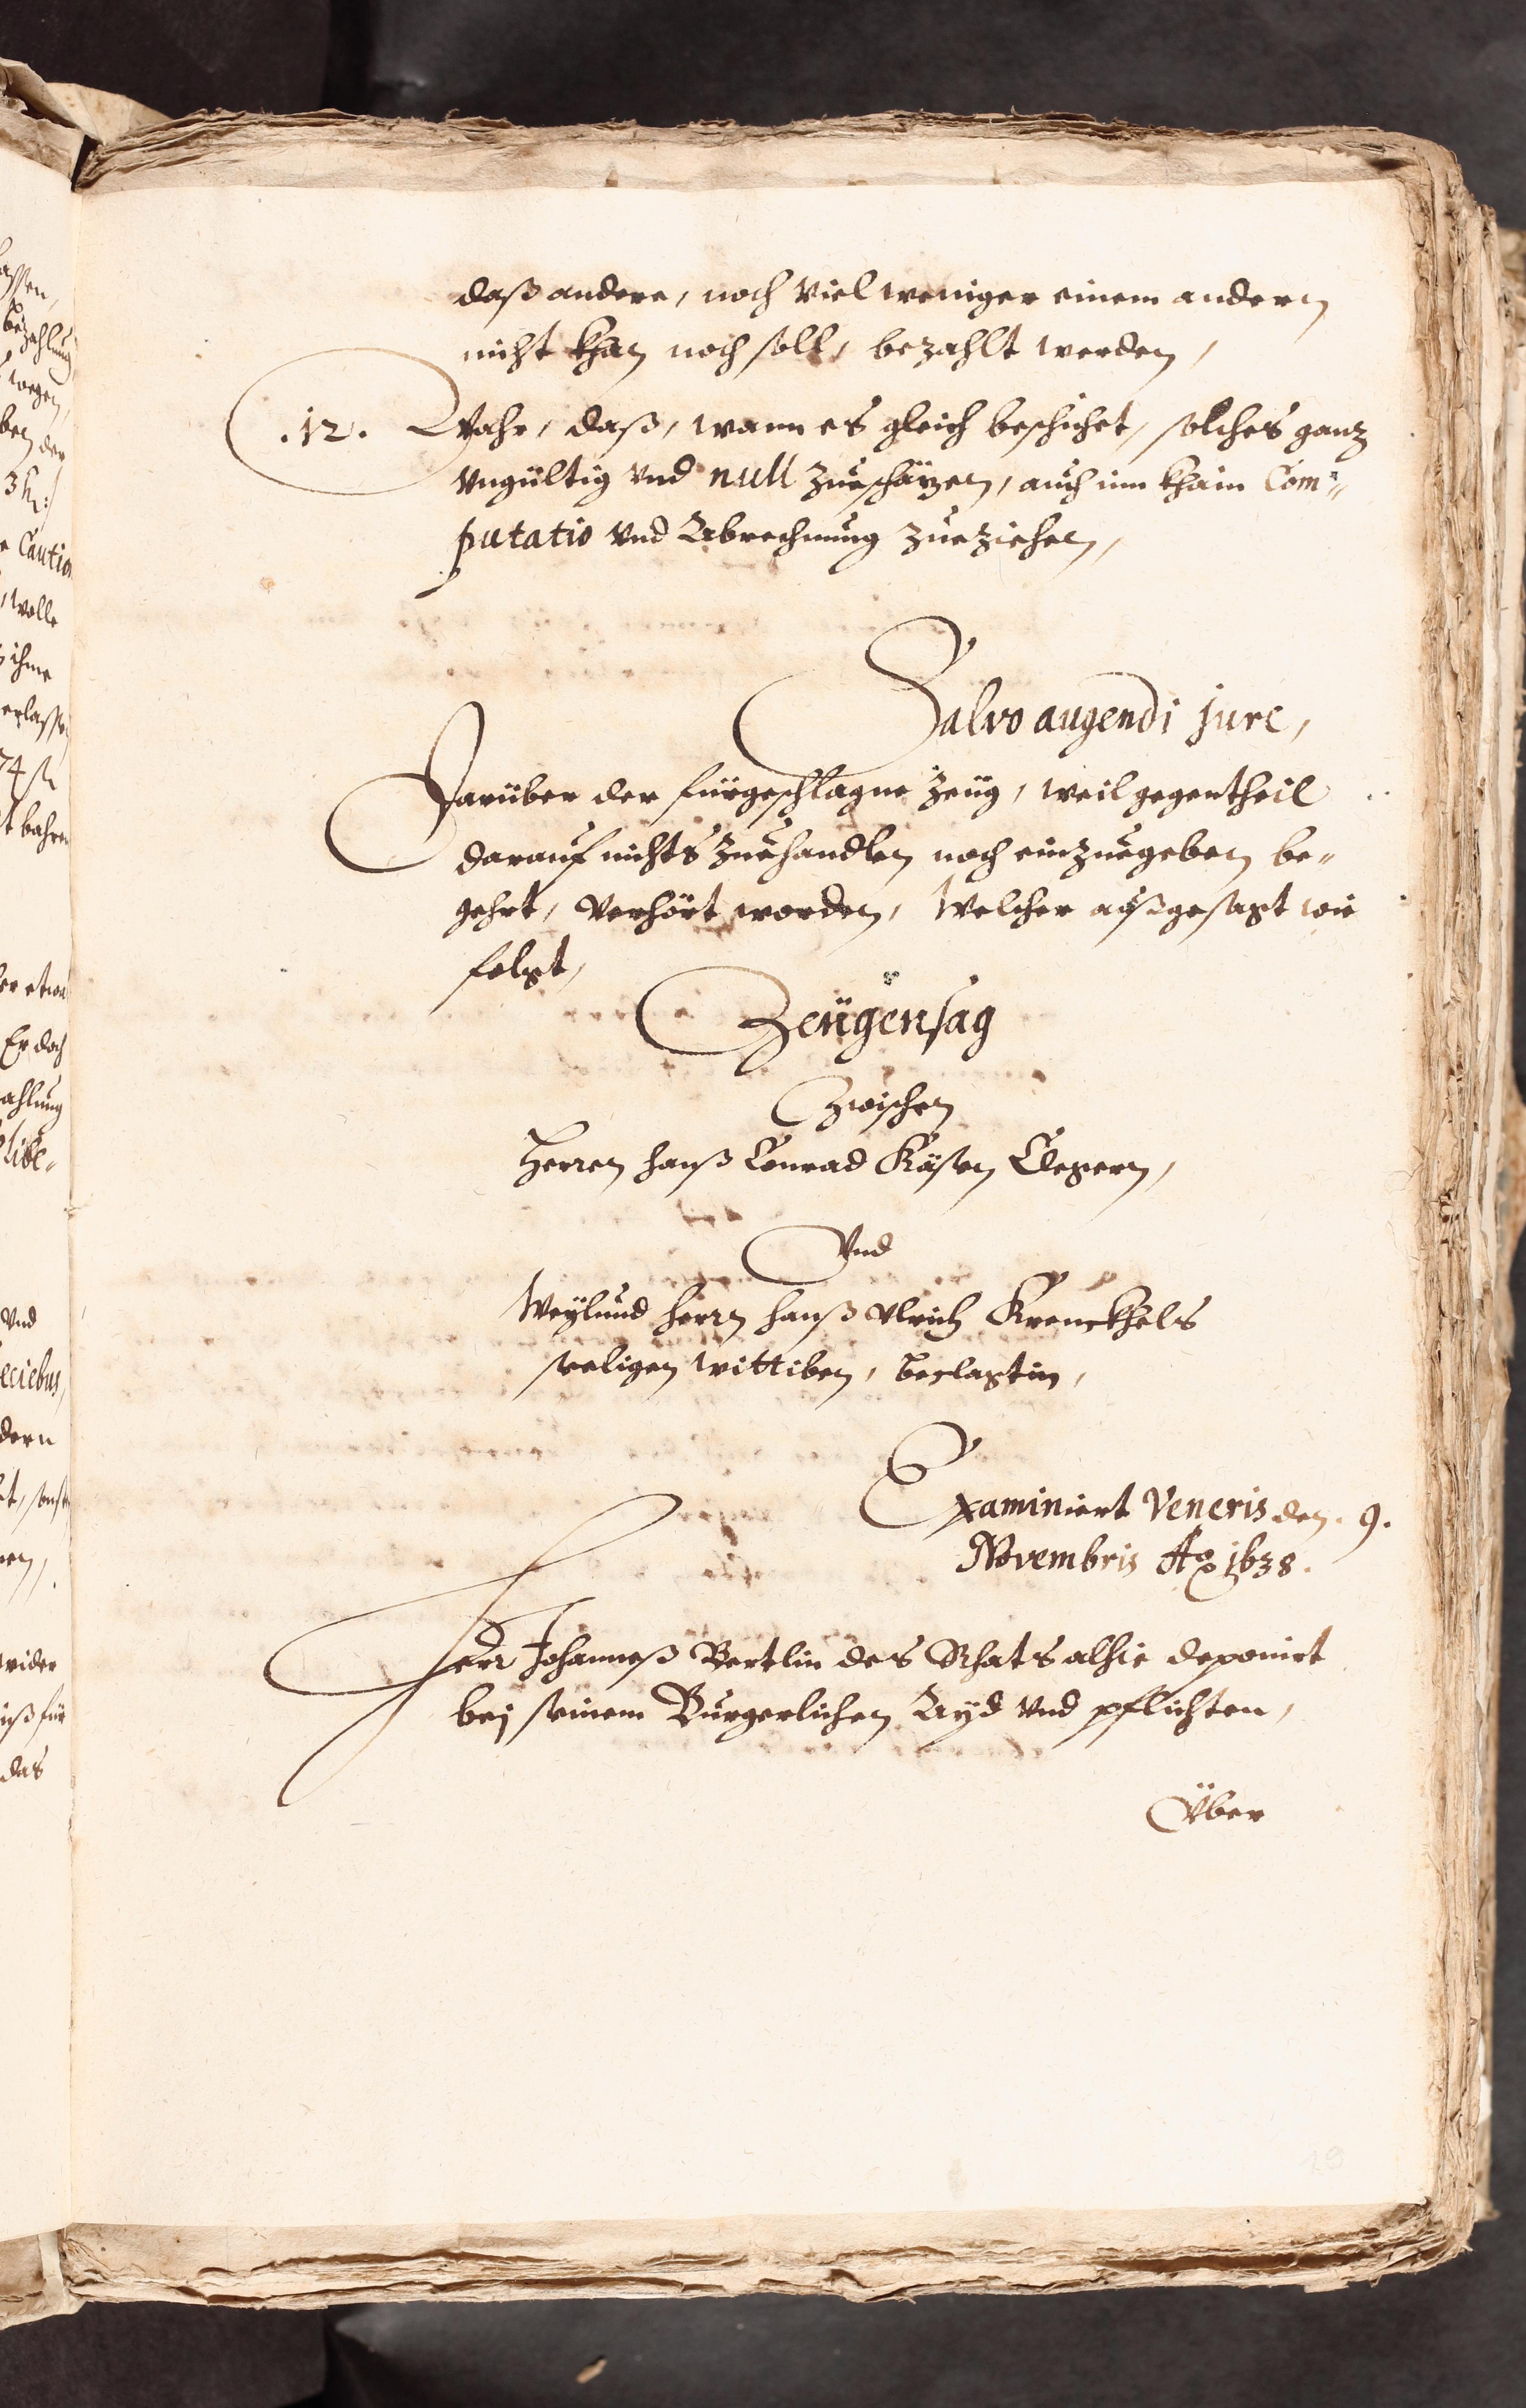 daß andere, noch viel weniger einem andern
nicht khan noch soll, bezahlt werden,
.12. Wahr, daß, wann es gleich beschichet, solches ganz
vngültig vnd null zueschäzen, auch inn khain Com-
putatio vnd Abrechnung zueziehen,
Salvo augendi jure,
Darüber der fürgeschlagne Zeüg, weil gegentheil
darauf nichts zuehandlen noch einzuegeben be-
gehrt, verhört worden, Welcher außgesagt wie
folgt,
Zeügensag
Zwischen
Herren Hanß Conrad Clegern,
Vnd
Weylund Herrn Hanß Vlrich Krenckhels
seeligen wittiben, beclagtin,
Examiniert Veneris den. 9.
Novembris Ao 1638.
Herr Johanneß Bertlin des Rhats alhie deponirt
bej seinem Burgerlichen Ayd vnd pflichten,
Über